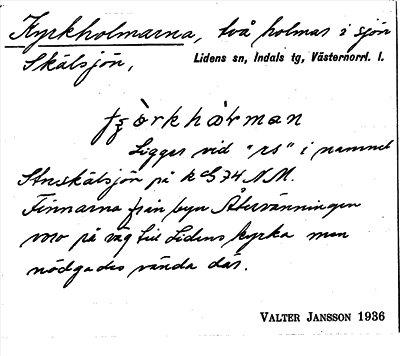 Kyrkholmarna, två holmar i sjön
Skälsjön,
Lidens sn, Indals tg, Västernorrl. l.
Ligger vid "rs" i namnet
Storskälsjön på k G 74 N.M.
Finnarna från byn Återvänningen
voro på väg till Lidens kyrka men
nödgades vända där.
VALTER JANSSON 1936